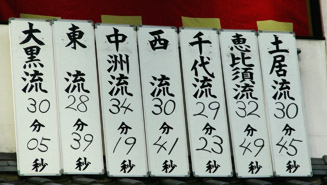 大黒流 30分05秒
東流 28分39秒
中洲流 34分19秒
西流 30分41秒
千代流 29分23秒
恵比須流 32分49秒
土居流 30分45秒